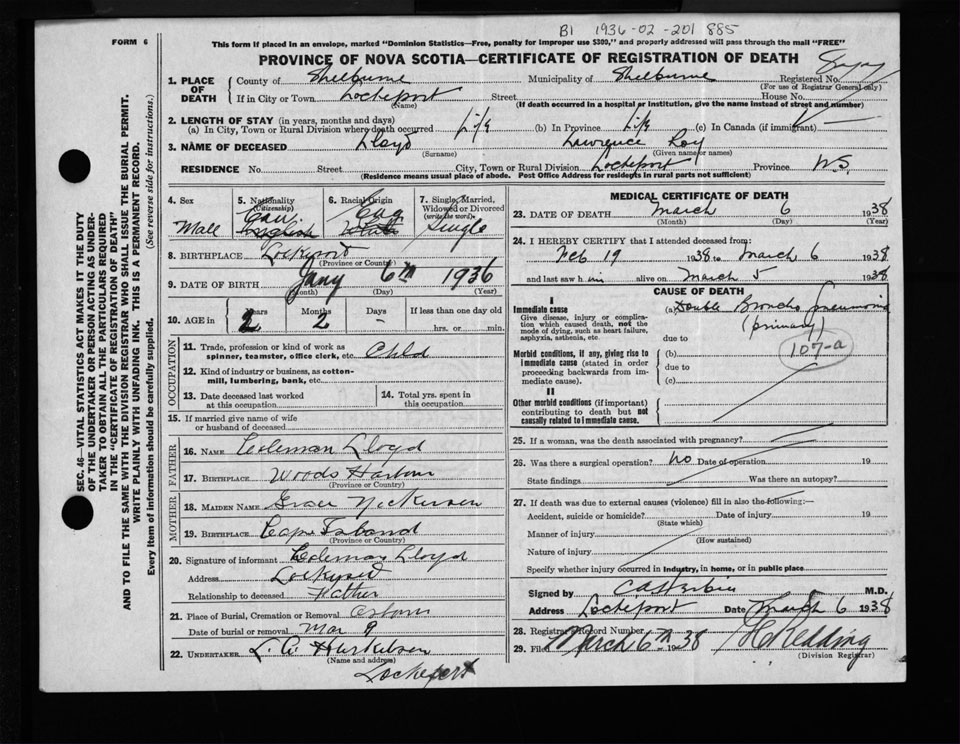 B1 1936-02-201885
FORM 6
This form if placed in an envelope, marked "Dominion Statistics—Free, penalty for improper use $300," and properly addressed will pass through the mail "FREE"
PROVINCE OF NOVA SCOTIA—CERTIFICATE OF REGISTRATION OF DEATH
1. PLACE OF DEATH County of Shelburne Municipality of Shelburne Registered No.
(For use of Registrar General only)
If in City or Town Lockeport Street House No.
(Name) (If death occurred in a hospital or institution, give the name instead of street and number)
2. LENGTH OF STAY (in years, months and days)
(a) In City, Town or Rural Division where death occurred Life (b) In Province Life (c) In Canada (if immigrant) —
3. NAME OF DECEASED Lloyd Lawrence Roy
(Surname) (Given name or names)
RESIDENCE No. Street City, Town or Rural Division Lockeport Province N.S.
(Residence means usual place of abode. Post Office Address for residents in rural parts not sufficient)
4. Sex Male
5. Nationality (Citizenship) Can English
6. Racial Origin Eng White
7. Single, Married, Widowed or Divorced (write the word) Single
8. BIRTHPLACE Lockeport
(Province or Country)
9. DATE OF BIRTH Jany 6th 1936
(Month) (Day) (Year)
10. AGE in Years 2 Months 2 Days - If less than one day old
hrs. or min.
OCCUPATION
11. Trade, profession or kind of work as spinner, teamster, office clerk, etc. Child
12. Kind of industry or business, as cotton-mill, lumbering, bank, etc.
13. Date deceased last worked at this occupation
14. Total yrs. spent in this occupation
15. If married give name of wife or husband of deceased
FATHER
16. NAME Coleman Lloyd
17. BIRTHPLACE Woods Harbour
(Province or Country)
MOTHER
18. MAIDEN NAME Grace Nickerson
19. BIRTHPLACE Cape Island
(Province or Country)
20. Signature of informant Coleman Lloyd
Address Lockeport
Relationship to deceased Father
21. Place of Burial, Cremation or Removal Osborn
Date of burial or removal Mar 9
22. UNDERTAKER
(Name and address)
Lockeport
MEDICAL CERTIFICATE OF DEATH
23. DATE OF DEATH March 6 1938
(Month) (Day) (Year)
24. I HEREBY CERTIFY that I attended deceased from:
Feb 19 1938 to March 6 1938
and last saw him alive on March 5 1938
CAUSE OF DEATH
I
Immediate cause
Give disease, injury or complication which caused death, not the mode of dying, such as heart failure, asphyxia, asthenia, etc.
(a) Double Broncho pneumonia
(primary)
due to
107-a
Morbid conditions, if any, giving rise to immediate cause (stated in order proceeding backwards from immediate cause).
(b)
due to
(c)
II
Other morbid conditions (if important) contributing to death but not causally related to immediate cause.
25. If a woman, was the death associated with pregnancy?
26. Was there a surgical operation? No Date of operation 19
State findings Was there an autopsy?
27. If death was due to external causes (violence) fill in also the following:—
Accident, suicide or homicide? Date of injury 19
(State which)
Manner of injury
(How sustained)
Nature of injury
Specify whether injury occurred in industry, in home, or in public place
Signed by M.D.
Address Lockeport Date March 6 1938
28. Registrar's Record Number
29. Filed March 6th 1938 Redding
(Division Registrar)
SEC. 46—VITAL STATISTICS ACT MAKES IT THE DUTY
OF THE UNDERTAKER OR PERSON ACTING AS UNDER-
TAKER TO OBTAIN ALL THE PARTICULARS REQUIRED
IN THE "CERTIFICATE OF REGISTRATION OF DEATH"
AND TO FILE THE SAME WITH THE DIVISION REGISTRAR WHO SHALL ISSUE THE BURIAL PERMIT.
WRITE PLAINLY WITH UNFADING INK. THIS IS A PERMANENT RECORD.
Every item of information should be carefully supplied. (See reverse side for instructions.)